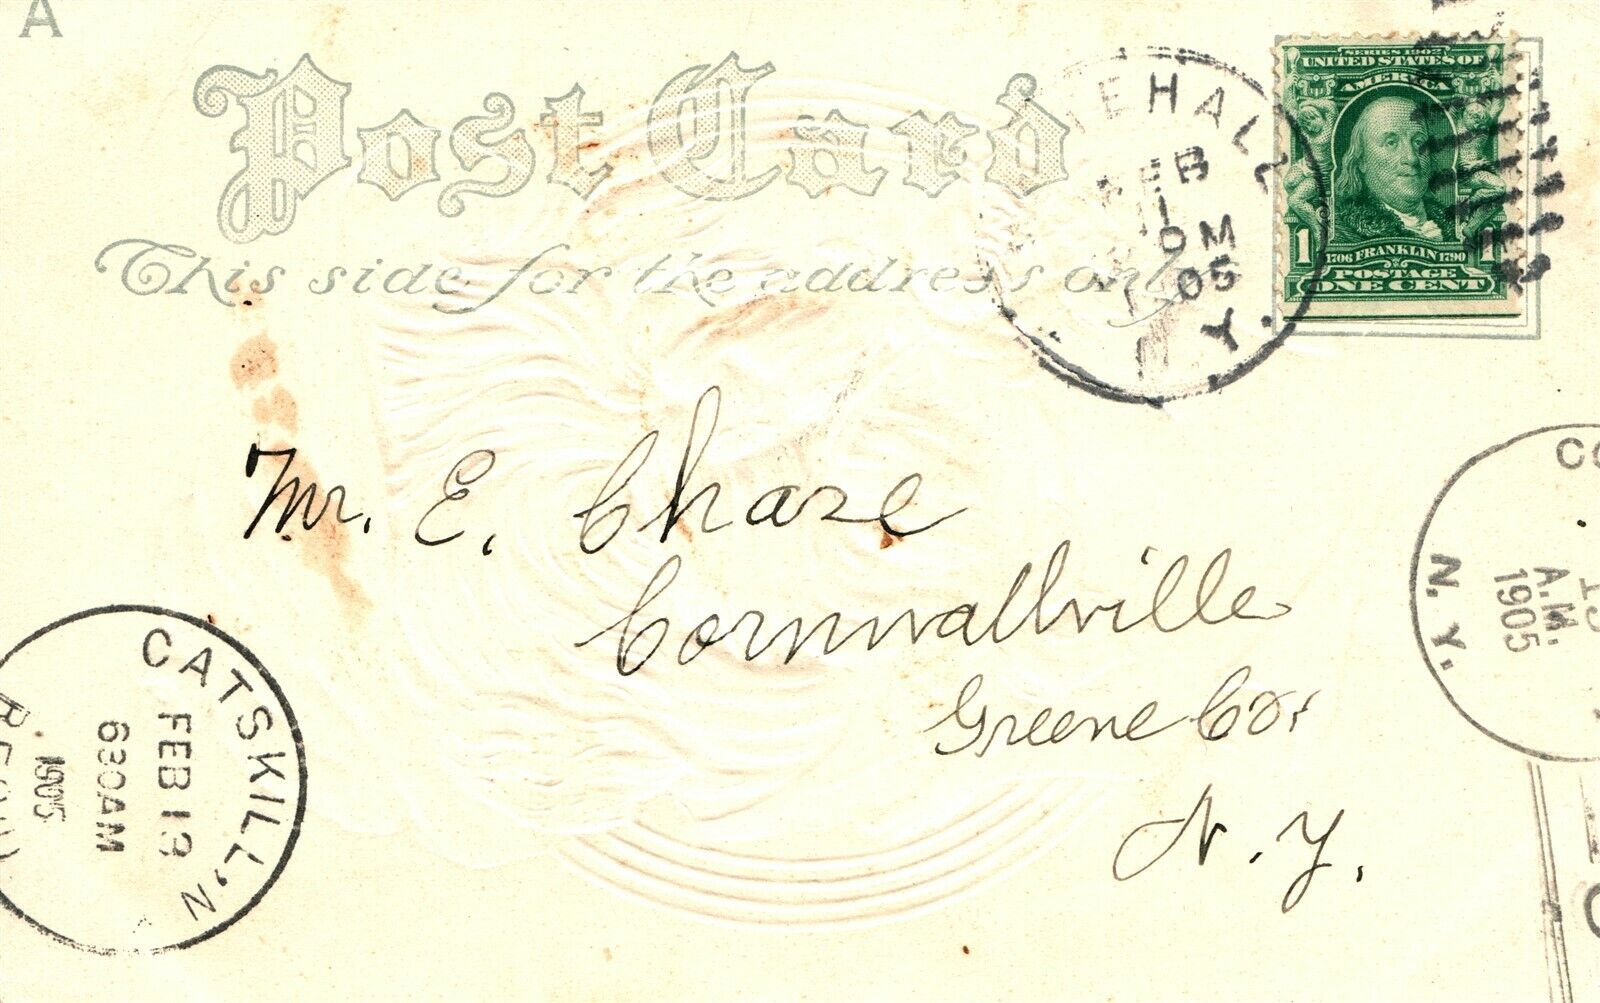 A
Post Card
This side for the address only
EHALL
FEB
1
PM
05
N.Y.
SERIES 1902
UNITED STATES OF
AMERICA
1706 FRANKLIN 1790
1 1
POSTAGE
ONE CENT
Mr. E. Chase
Cornwallville
Greene Co.
N. Y.
CATSKILL, N
FEB 13
630AM
1905
CO
A.M.
1905
N. Y.